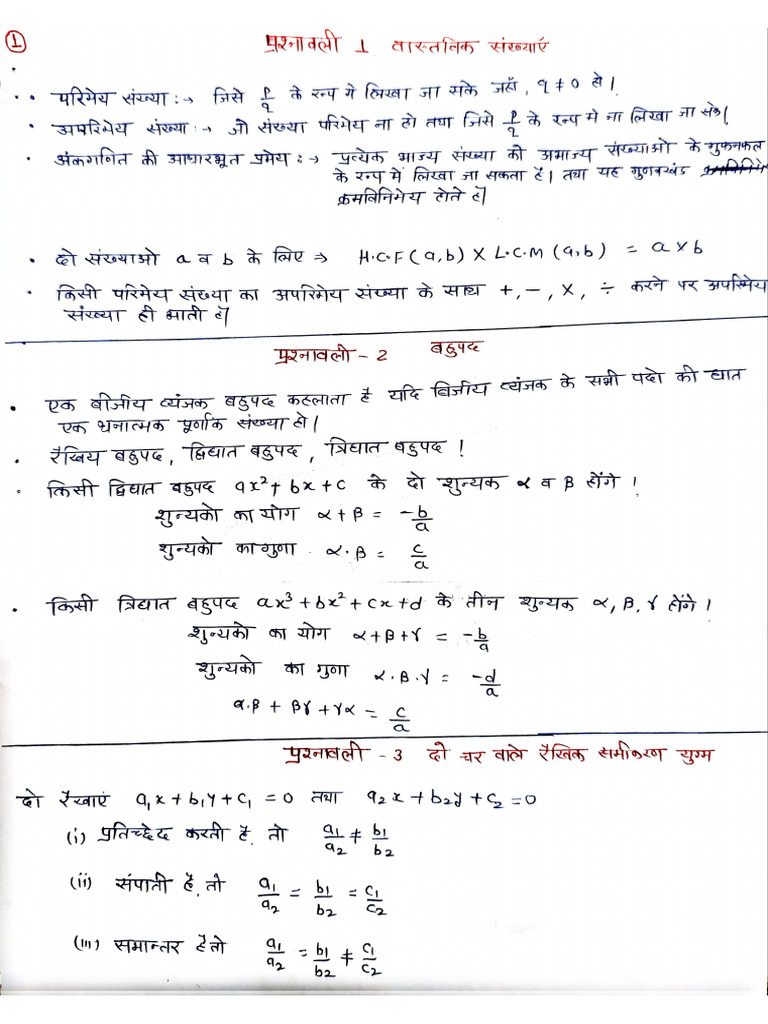 ①
प्रश्नावली 1 वास्तविक संख्याएँ
• परिमेय संख्या :→ जिसे p/q के रूप मे लिखा जा सके जहाँ, q ≠ 0 हो।
• अपरिमेय संख्या :→ जो संख्या परिमेय ना हो तथा जिसे p/q के रूप मे ना लिखा जा सके।
• अंकगणित की आधारभूत प्रमेय :→ प्रत्येक भाज्य संख्या को अभाज्य संख्याओ के गुणनफल
के रूप में लिखा जा सकता है। तथा यह गुणनखंड
क्रमविनिमेय होते है।
• दो संख्याओ a व b के लिए ⇒ H.C.F(a,b) X L.C.M(a,b) = a x b
• किसी परिमेय संख्या का अपरिमेय संख्या के साथ +, -, X, ÷ करने पर अपरिमेय
संख्या ही आती है।
प्रश्नावली - 2 बहुपद
• एक बीजीय व्यंजक बहुपद कहलाता है यदि बिजीय व्यंजक के सभी पदो की घात
एक धनात्मक पूर्णांक संख्या हो।
• रैखिय बहुपद, द्विघात बहुपद, त्रिघात बहुपद !
• किसी द्विघात बहुपद ax² + bx + c के दो शुन्यक α व β होंगे !
शुन्यको का योग α + β = -b/a
शुन्यको का गुणा α . β = c/a
• किसी त्रिघात बहुपद ax³ + bx² + cx + d के तीन शुन्यक α, β, γ होंगे !
शुन्यको का योग α + β + γ = -b/a
शुन्यको का गुणा α . β . γ = -d/a
α.β + βγ + γα = c/a
प्रश्नावली - 3 दो चर वाले रैखिक समीकरण युग्म
दो रेखाएं a₁x + b₁y + c₁ = 0 तथा a₂x + b₂y + c₂ = 0
(i) प्रतिच्छेद करती है, तो a₁/a₂ ≠ b₁/b₂
(ii) संपाती है, तो a₁/a₂ = b₁/b₂ = c₁/c₂
(iii) समान्तर है तो a₁/a₂ = b₁/b₂ ≠ c₁/c₂